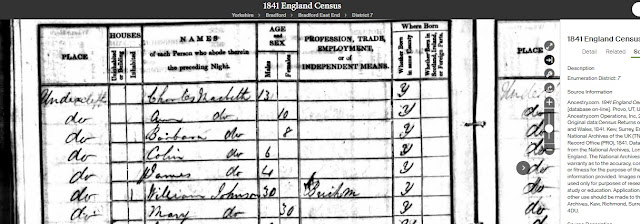 1841 England Census
Yorkshire > Bradford > Bradford East End > District 7
PLACE
HOUSES
Uninhabited or Building
Inhabited
NAMES
of each Person who abode therein the preceding Night.
AGE and SEX
Males
Females
PROFESSION, TRADE, EMPLOYMENT, or of INDEPENDENT MEANS.
Where Born
Whether Born in same County
Whether Born in Scotland, Ireland, or Foreign Parts.
Undercliffe Charles Macbeth 13 Y
do Ann do 10 Y
do Barbara do 8 Y
do Colin do 6 Y
do James do 4 Y
do 1 William Johnson 30 Y
do Mary do 30 Y
PLACE
HOUSES
Uninhabited or Building
Inhabited
do
do
do
do
do
do
1841 England Census
Detail Related
Description
Enumeration District: 7
Source Information
Ancestry.com. 1841 England Cens
[database on-line]. Provo, UT, U
Ancestry.com Operations, Inc, 2
Original data: Census Returns o
and Wales, 1841. Kew, Surrey, E
National Archives of the UK (TN
Record Office (PRO), 1841. Data
from the National Archives, Lon
England. The National Archives
warranty as to the accuracy, co
or fitness for the purpose of the
information provided. Images m
used only for purposes of resea
study or education. Application
other use should be made to th
Archives, Kew, Richmond, Surre
4DU.